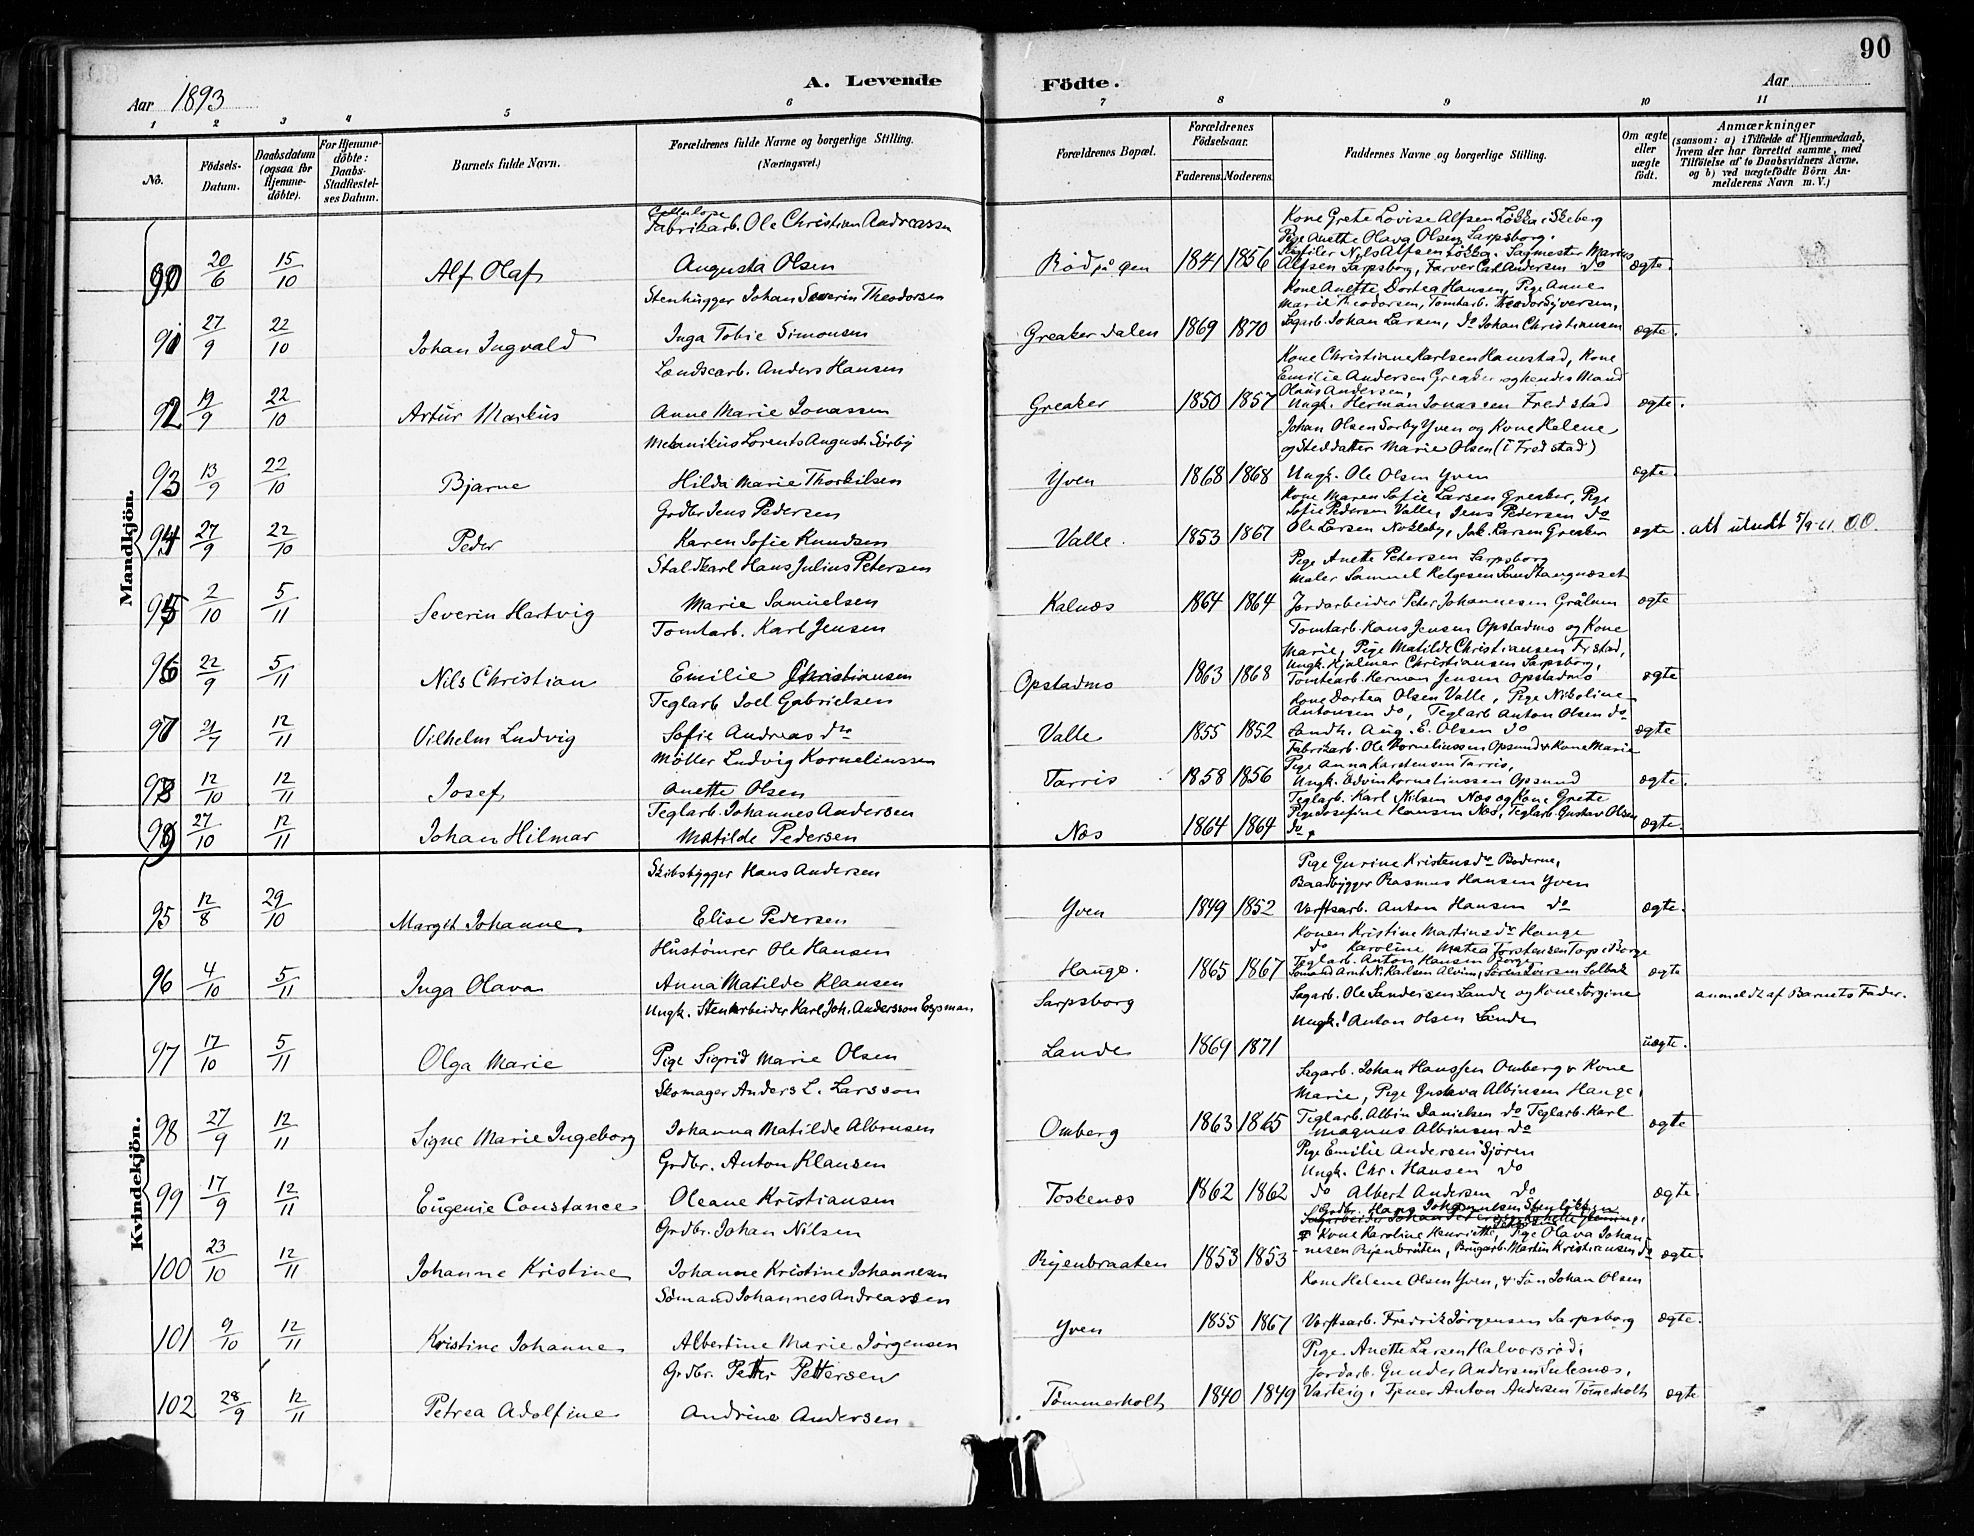 90
Aar 1893
A. Levende Födte.
Aar
1 2 3 4 5 6 7 8 9 10 11
No.
Födsels-Datum.
Daabsdatum (ogsaa for Hjemme-döbte).
For Hjemme-döbte: Daabs-Stadfæstel-ses Datum.
Barnets fulde Navn.
Forældrenes fulde Navne og borgerlige Stilling. (Næringsvei.)
Forældrenes Bopæl.
Forældrenes Födselsaar.
Faderens. Moderens.
Faddernes Navne og borgerlige Stilling.
Om ægte eller uægte födt.
Anmærkninger (saasom: a) i Tilfælde af Hjemmedaab, hvem der har forrettet samme, med Tilföielse af to Daabsvidners Navne, og b) ved uægtefödte Börn An-melderens Navn m. V.)
Mandkjön.
90 20/6 15/10 Alf Olaf
Cellulose Fabrikarb. Ole Christian Andreassen
Augusta Olsen
Röd på øen 1841 1856
Kone Grete Lovise Alfsen Løkka i Skeberg
Pige Anette Olava Olsen Sarpsborg.
Nils Alfsen Løkka. Sagmester Marius
Alfsen Sarpsborg, Farver Carl Andersen do
ægte.
91 27/9 22/10 Johan Ingvald
Stenhugger Johan Severin Theodorsen
Inga Tobie Simonsen
Greaker dalen 1869 1870
Kone Anette Dortea Hansen, Pige Anne
Marie Theodorsen, Tomtarb. Theodor Syversen,
Sagarb. Johan Larsen, Do Johan Christiansen
ægte.
92 19/9 22/10 Artur Markus
Landsarb. Anders Hansen
Anne Marie Jonassen
Greaker 1850 1857
Kone Christiane Karlsen Hanestad, Kone
Emilie Andersen Greaker og hendes Mand
Olaus Andersen,
Ungk. Herman Jonassen Fredstad
ægte.
93 13/9 22/10 Bjarne
Mekanikus Lorents August Sörby
Hilda Marie Thorkilsen
Yven 1868 1868
Johan Olsen Sorby Yven og Kone Helene
og Steddatter Marie Olsen (i Fredstad)
Ungk. Ole Olsen Yven
ægte.
94 27/9 22/10 Peder
Grdbr Jens Pedersen
Karen Sofie Knudsen
Valle. 1853 1867
Kone Maren Sofie Larsen Greaker, Pige
Sofie Pedersen Valle, Jens Pedersen do
Ole Larsen Nokleby, Jak. Larsen Greaker
ægte. att utstedt 5/9-61. OO.
95 2/10 5/11 Severin Hartvig
Staldkarl Hans Julius Petersen
Marie Samuelsen
Kalnæs 1864 1864
Pige Anette Petersen Sarpsborg
Maler Samuel Helgesen Sandtangnæset
Jordarbeider Peter Johannesen Grålum
ægte
96 22/9 5/11 Nils Christian
Tomtarb. Karl Jensen
Emilie Christiansen
Opstadmo 1863 1868
Tomtarb. Hans Jensen Opstadmo og Kone
Marie, Pige Matilde Christiansen Frstad,
Ungk. Hjalmar Christiansen Sarpsborg,
Tomtearb. Herman Jensen Opstadmo
ægte
97 21/7 12/11 Vilhelm Ludvig
Teglarb Joel Gabrielsen
Sofie Andreasdr
Valle 1855 1852
Kone Dortea Olsen Valle, Pige Nikoline
Antonsen do, Teglarb Anton Olsen do
Landh. Aug. E. Olsen do
ægte
98 12/10 12/11 Josef
Möller Ludvig Korneliussen
Anette Olsen
Tarris 1858 1856
Fabrikarb. Ole Korneliussen Opsund & Kone Marie
Pige Anna Karstensen Tarris,
Ungk. Edvin Korneliussen Opsund
ægte.
99 27/10 12/11 Johan Hilmar
Teglarb. Johannes Andersen
Matilde Pedersen
Næs 1864 1864
Teglarb. Karl Nilsen Næs og Kone Grete
Pige Josefine Hansen Næs, Teglarb. Gustav Olsen
do
ægte.
Kvindekjön.
95 12/8 29/10 Margit Johanne
Skibsbygger Hans Andersen
Elise Pedersen
Yven 1849 1852
Pige Gurine Kristensdr Boderne,
Baadbygger Rasmus Hansen Yven
Værftsarb. Anton Hansen do
ægte.
96 4/10 5/11 Inga Olava
Hustømrer Ole Hansen
Anna Matilde Klausen
Hauge. 1865 1867
Konen Kristine Martinsdr Hauge
do Karoline Matea Torstensen Torp i Borge
Teglarb. Anton Hansen Borge
Sømand Arnt N. Karlsen Alvim, Søren Iversen Solbak
ægte
97 17/10 5/11 Olga Marie
Ungk. Stenarbeider Karl Joh. Andersson Espman
Pige Sigrid Marie Olsen
Sarpsborg
Lande 1869 1871
Sagarb. Ole Sandersen Lande og Kone Jørgine
Ungk. Anton Olsen Lande
uægte. anmeldt af Barnets Fader.
98 27/9 12/11 Signe Marie Ingeborg
Skomager Anders L. Larsson
Johanna Matilde Albinsen
Omberg 1863 1865
Sagarb. Johan Hanssen Omberg & Kone
Marie, Pige Gustava Albinsen Hauge,
Teglarb. Albin Danielsen do Teglarb. Karl
Magnus Albinsen do
ægte
99 17/9 12/11 Eugenie Constance
Grdbr. Anton Klausen
Oleane Kristiansen
Toskenæs 1862 1862
Pige Emilie Andersen Sjøren
Ungk. Chr. Hansen do
do Albert Andersen do
ægte.
100 23/10 12/11 Johanne Kristine
Grdbr. Johan Nilsen
Johanne Kristine Johannesen
Rijenbraaten 1853 1853
Grdbr. Hans Johannesen Stenløkken
& Kone Karoline Henriette, Pige Olava Johan-
nesen Rijenbråten, Brugarb. Martin Kristiansen do
ægte.
101 9/10 12/11 Kristine Johanne
Sömand Johannes Andreassen
Albertine Marie Jörgensen
Yven 1855 1867
Kone Helene Olsen Yven, & Sön Johan Olsen
Værftsarb. Fredrik Jörgensen Sarpsborg
ægte.
102 28/9 12/11 Petrea Adolfine
Grdbr. Petter Pettersen
Andrine Andersen
Tömmerholt 1840 1849
Pige Anette Larsen Halvorsröd,
Jordarb. Gunder Andersen
Varteig, Tjener Anton Andersen Tömmerholt
ægte